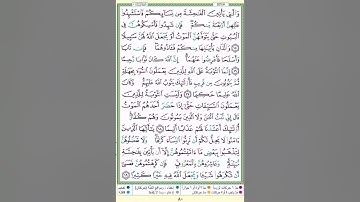 وَٱلَّٰتِي يَأۡتِينَ ٱلۡفَٰحِشَةَ مِن نِّسَآئِكُمۡ فَٱسۡتَشۡهِدُواْ
عَلَيۡهِنَّ أَرۡبَعَةٗ مِّنكُمۡۖ فَإِن شَهِدُواْ فَأَمۡسِكُوهُنَّ فِي
ٱلۡبُيُوتِ حَتَّىٰ يَتَوَفَّىٰهُنَّ ٱلۡمَوۡتُ أَوۡ يَجۡعَلَ ٱللَّهُ لَهُنَّ سَبِيلٗا
١٥ وَٱلَّذَانِ يَأۡتِيَٰنِهَا مِنكُمۡ فَـَٔاذُوهُمَاۖ فَإِن تَابَا
وَأَصۡلَحَا فَأَعۡرِضُواْ عَنۡهُمَآۗ إِنَّ ٱللَّهَ كَانَ تَوَّابٗا رَّحِيمًا
١٦ إِنَّمَا ٱلتَّوۡبَةُ عَلَى ٱللَّهِ لِلَّذِينَ يَعۡمَلُونَ ٱلسُّوٓءَ بِجَهَٰلَةٖ
ثُمَّ يَتُوبُونَ مِن قَرِيبٖ فَأُوْلَٰٓئِكَ يَتُوبُ ٱللَّهُ عَلَيۡهِمۡۗ وَكَانَ
ٱللَّهُ عَلِيمًا حَكِيمٗا ١٧ وَلَيۡسَتِ ٱلتَّوۡبَةُ لِلَّذِينَ
يَعۡمَلُونَ ٱلسَّيِّـَٔاتِ حَتَّىٰٓ إِذَا حَضَرَ أَحَدَهُمُ ٱلۡمَوۡتُ
قَالَ إِنِّي تُبۡتُ ٱلۡـَٰٔنَ وَلَا ٱلَّذِينَ يَمُوتُونَ وَهُمۡ كُفَّارٌۚ
أُوْلَٰٓئِكَ أَعۡتَدۡنَا لَهُمۡ عَذَابًا أَلِيمٗا ١٨ يَٰٓأَيُّهَا ٱلَّذِينَ ءَامَنُواْ
لَا يَحِلُّ لَكُمۡ أَن تَرِثُواْ ٱلنِّسَآءَ كَرۡهٗاۖ وَلَا تَعۡضُلُوهُنَّ
لِتَذۡهَبُواْ بِبَعۡضِ مَآ ءَاتَيۡتُمُوهُنَّ إِلَّآ أَن يَأۡتِينَ بِفَٰحِشَةٖ
مُّبَيِّنَةٖۚ وَعَاشِرُوهُنَّ بِٱلۡمَعۡرُوفِۚ فَإِن كَرِهۡتُمُوهُنَّ فَعَسَىٰٓ
أَن تَكۡرَهُواْ شَيۡـٔٗا وَيَجۡعَلَ ٱللَّهُ فِيهِ خَيۡرٗا كَثِيرٗا ١٩
٨٠